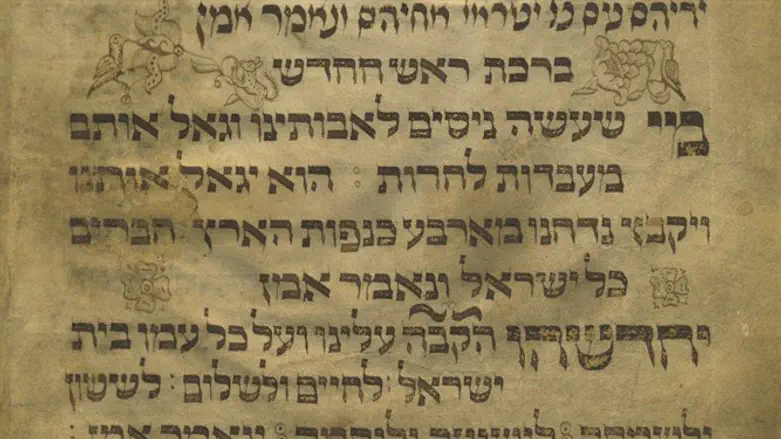 ידיהם עם כל ישראל אחיהם ונאמר אמן
ברכת ראש החדש
מיי שעשה ניסים לאבותינו וגאל אותם
מעבדות לחרות : הוא יגאל אותנו
ויקבץ נדחנו מארבע כנפות הארץ חברים
כל ישראל ונאמר אמן
יחדשהו הקבה עלינו ועל כל עמו בית
ישראל : לחיים ולשלום : לששון
ולשמחה : לישועה ולנחמה : ונאמר אמן :